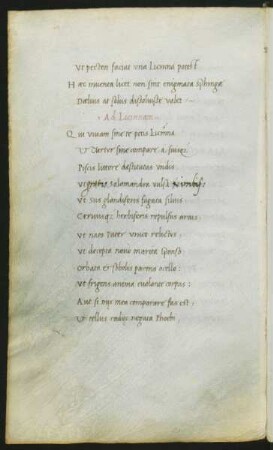 Ut pestem facias una Lucinna potest
Hac invenea licet non sint enigmata sphinge
Delius at solus dissoluisse valet
Ad Lucinnam
Qui vivam sine te petis Lucinna
Ut Turtur sine compare a suaq;
Piscis littore destitutus undis
Ut salamandra vulsa
Ut sus glandiferis fugata silvis
Cervusq; herbiferis repulsus arvis
Ut natis pater unice relictus
Ut decepta viro marita
Orbata et sobolis parens ocello
Ut frigens anima evalante corpus
Aut si diis mea comparare fas est
Ut tellus radiis negata Phoebi